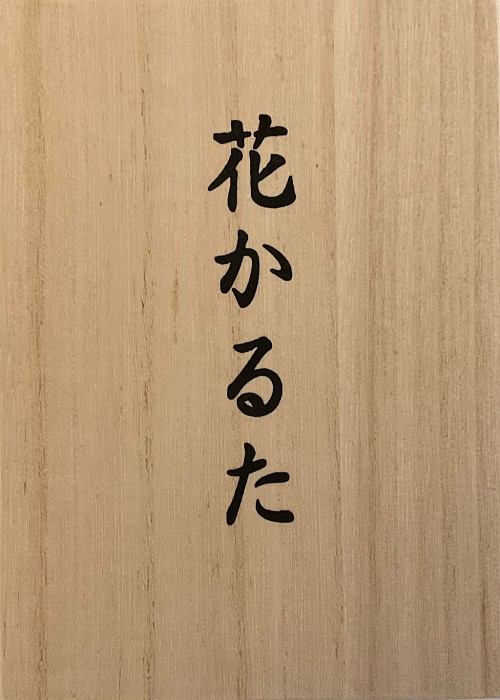 花かるた